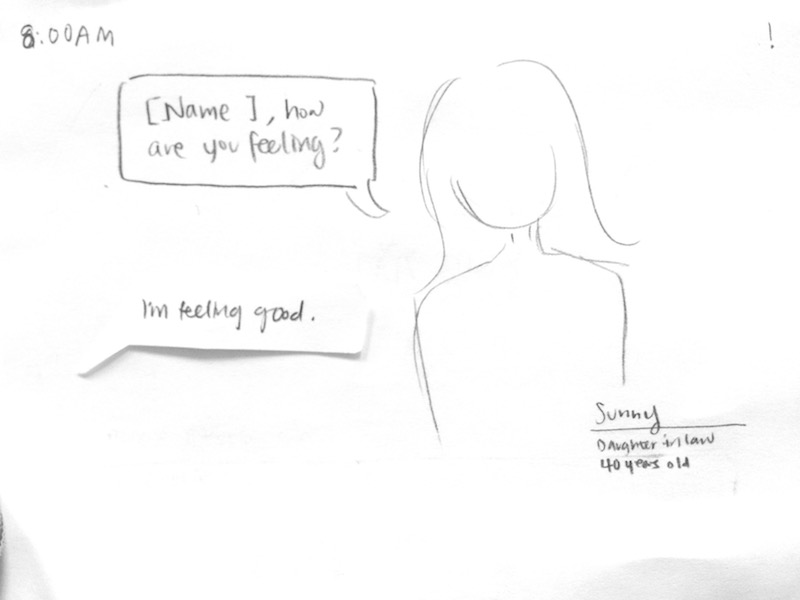 8:00AM
!
[Name], how
are you feeling?
I'm feeling good.
Sunny
Daughter in law
40 years old